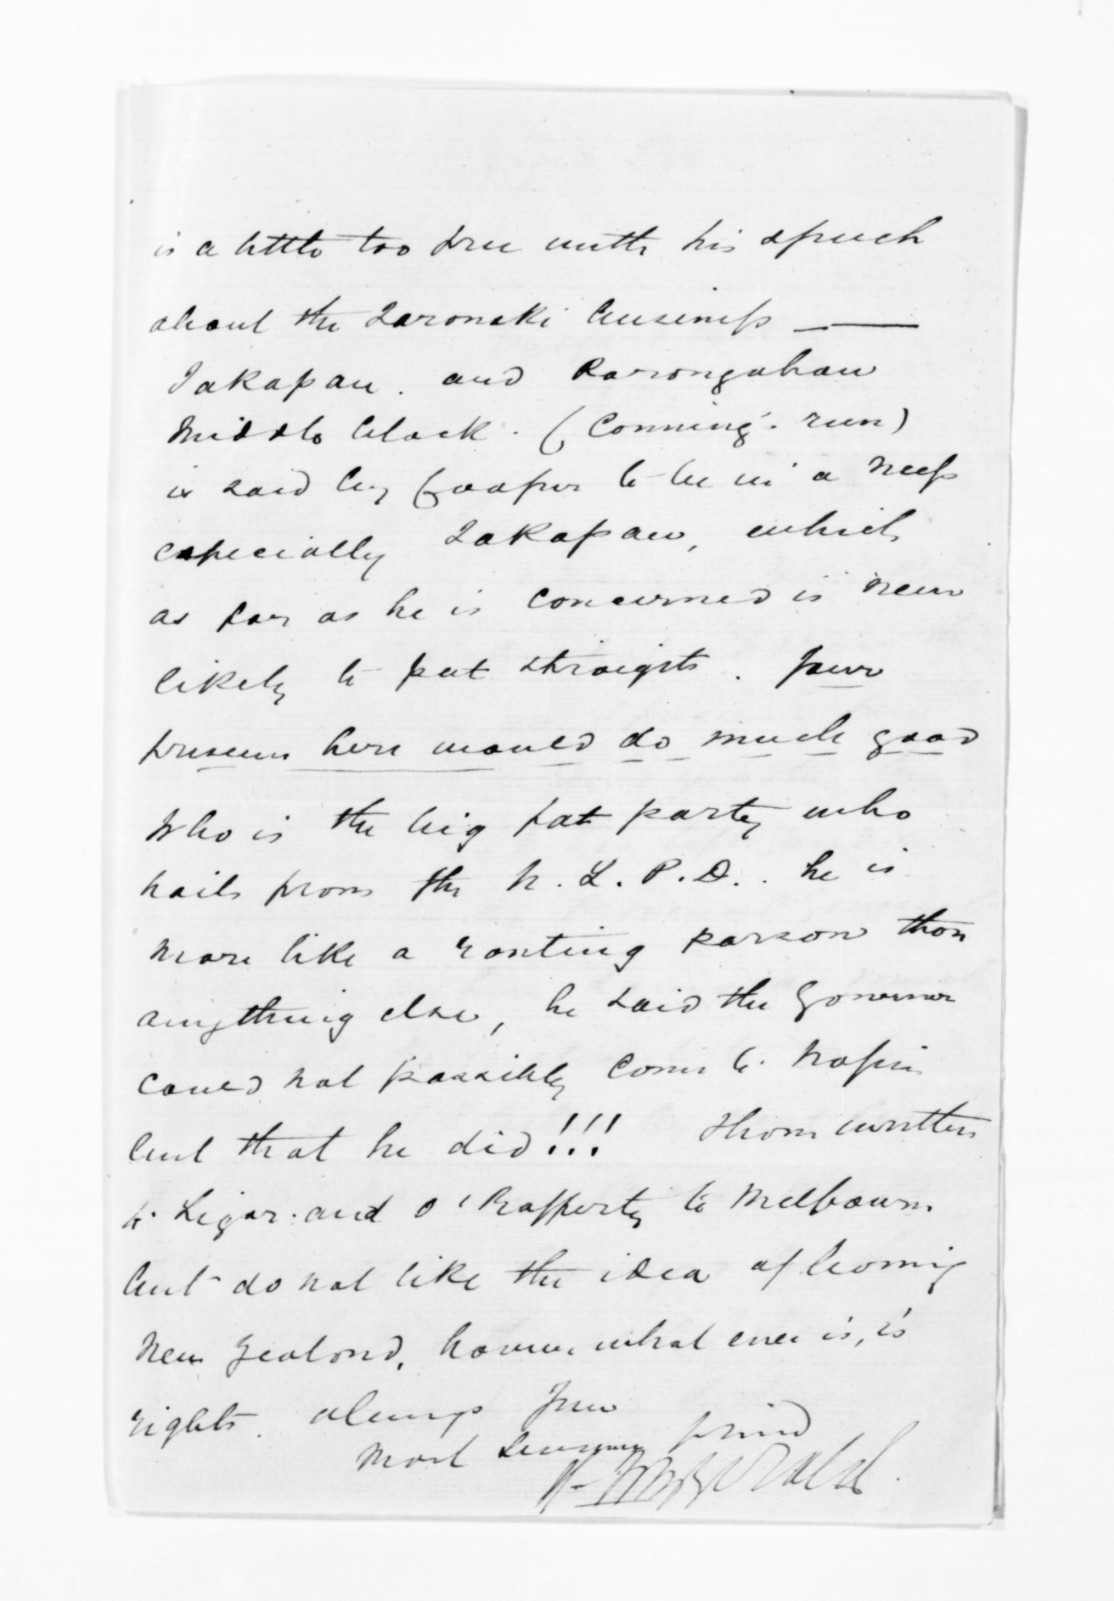 is a little too free with his speech
about the Taronaki business ——
Takapau. and Rarongahau
Middle block. (Conning's run)
is said by Cooper to be in a mess
especially Takapau, which
as far as he is concerned is never
likely to put straight. Your
presence here would do much good
Who is the big fat party who
hails from the N. L. P. D.. he is
more like a ranting parson than
anything else, he said the Governor
could not possibly come to Napier
but that he did!!! I have written
to Ligar. and O'Rafferty to Melbourne
but do not like the idea of leaving
New Zealand, however what ever is, is
right. always your
Most Sincere friend
Fitzgerald.